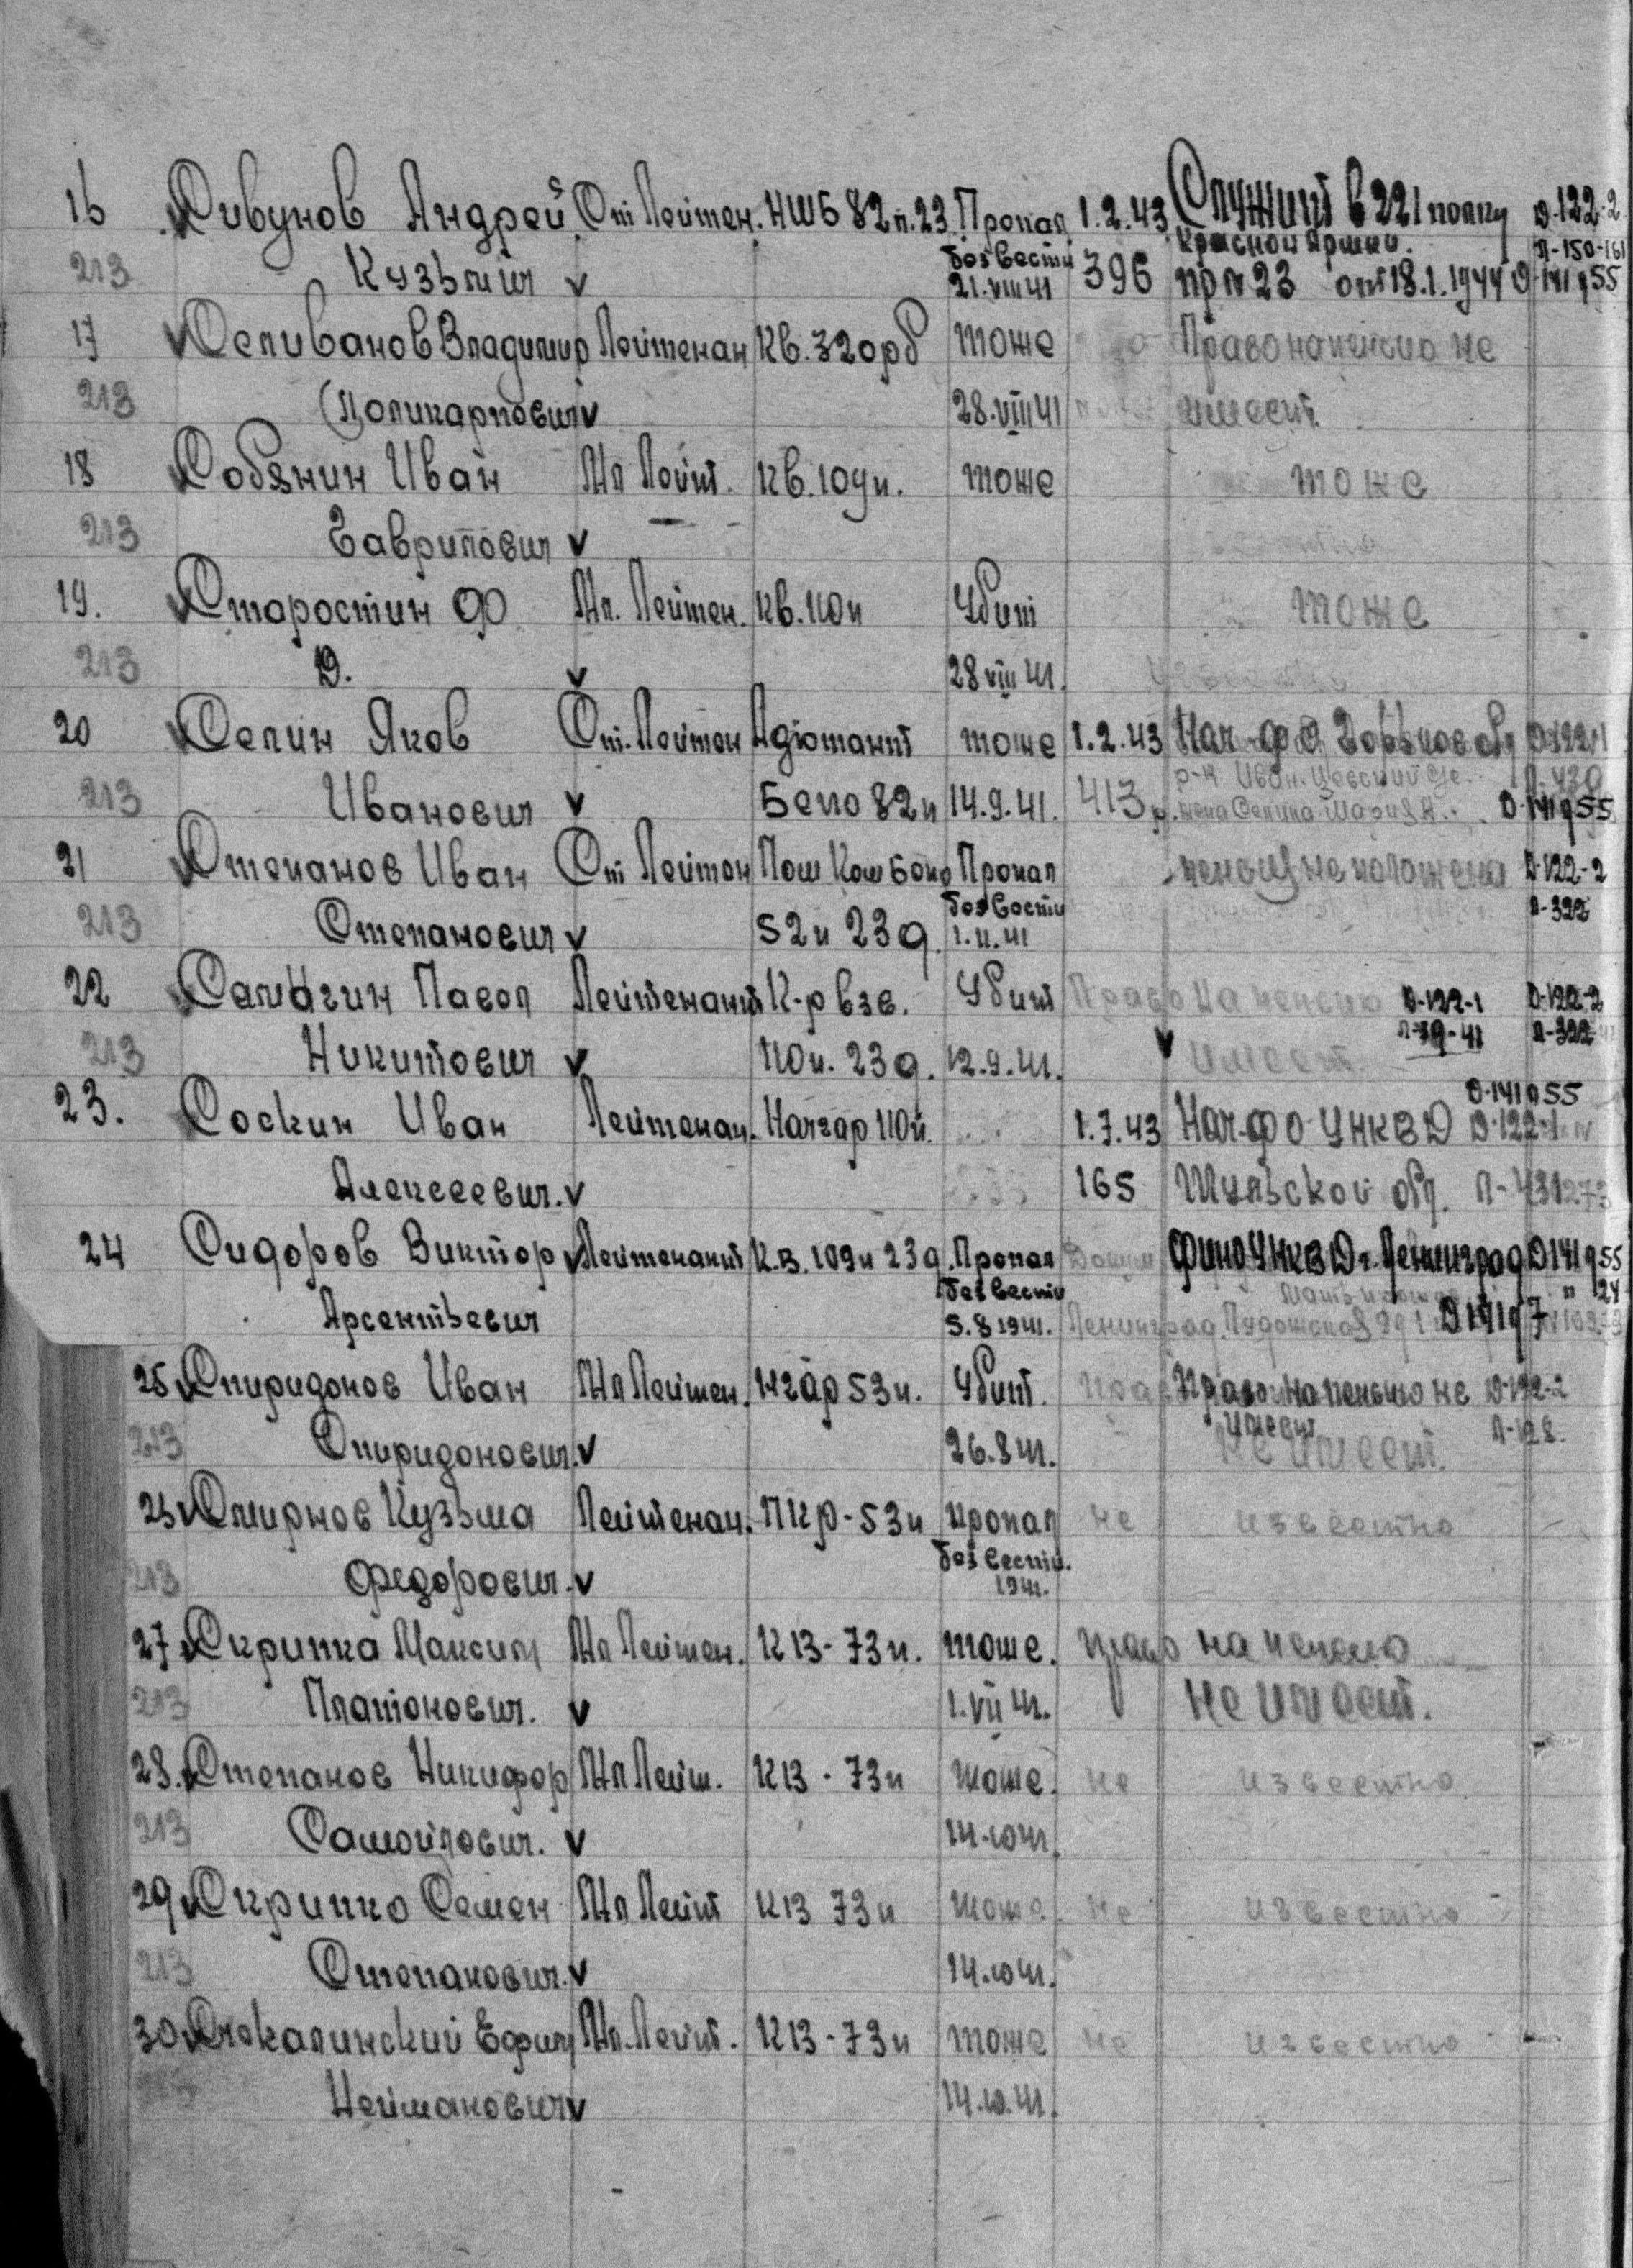 16 Сивунов Андрей Ст Лейтен. НШБ 82п.23 Пропал 1.2.43 Служит в 221 полку д.122-2
Красной Армии. л-150-161
213 Кузьмич без вести 21.VIII 41 396 пр №23 от 18.1.1944 д-141 д 55
17 Селиванов Владимир Лейтенан Кв. 32орб тоже Право на пенсию не
213 Поликарпович 28.VIII 41 имеет
18 Собянин Иван Мл Лейт. Кв. 109п. тоже тоже
213 Гаврилович
19. Старостин Ф Мл. Лейтен. Кв. 110п Убит тоже
213 Д. 28 VIII 41.
20 Селин Яков Ст. Лейтен Адютант тоже 1.2.43 Нач-ФО Горьков обл Д-122-1
213 Иванович Бепо 82п 14.9.41. 413 р. жена Селина Мария Д-141 д 55
21 Степанов Иван Ст Лейтен Пом Ком Бепо Пропал пенсия не положена Д-122-2
без вести л-322
213 Степанович 52п 23д. 1.11.41
22 Павел Лейтенант К-р взв. Убит Право на пенсию Д-122-1 Д-122-2
л-39-41 л-322
213 Никитович 110п. 23д. 12.9.41. имеет.
Д-141 д 55
23. Соскин Иван Лейтенан. Начгар 110п. 1.7.43 Нач ФО УНКВД Д-122-1
Алексеевич. 165 Тульской обл.
24 Сидоров Виктор Лейтенант К.В. 109п 23д. Пропал ФИНО УНКВД г. Ленинград Д 141 д 55
без вести л 24
Арсентьевич 5.8 1941. Ленинград. Д 141 д 7
25 Спиридонов Иван Мл Лейтен. Нгар 53п. Убит. Право на пенсию не Д-122-2
имеет л-128.
213 Спиридонович. 26.8 41. не имеет.
25 Смирнов Кузьма Лейтенан. ПКр-53п пропал не известно
без вести.
213 Федорович. 1941.
27 Скрипка Максим Мл Лейтен. КВ-73п. тоже. право на пенсию
213 Платонович. 1.VII 41. не имеет.
28. Степанов Никифор Мл Лейт. КВ-73п тоже. не известно
213 Самойлович. 14.10 41
29 Скрипко Семен Мл Лейт КВ 73п тоже. не известно
213 Степанович. 14.10 41.
30 Счекалинский Ефим Мл. Лейт. КВ-73п тоже не известно
213 Нейманович 14.10.41.